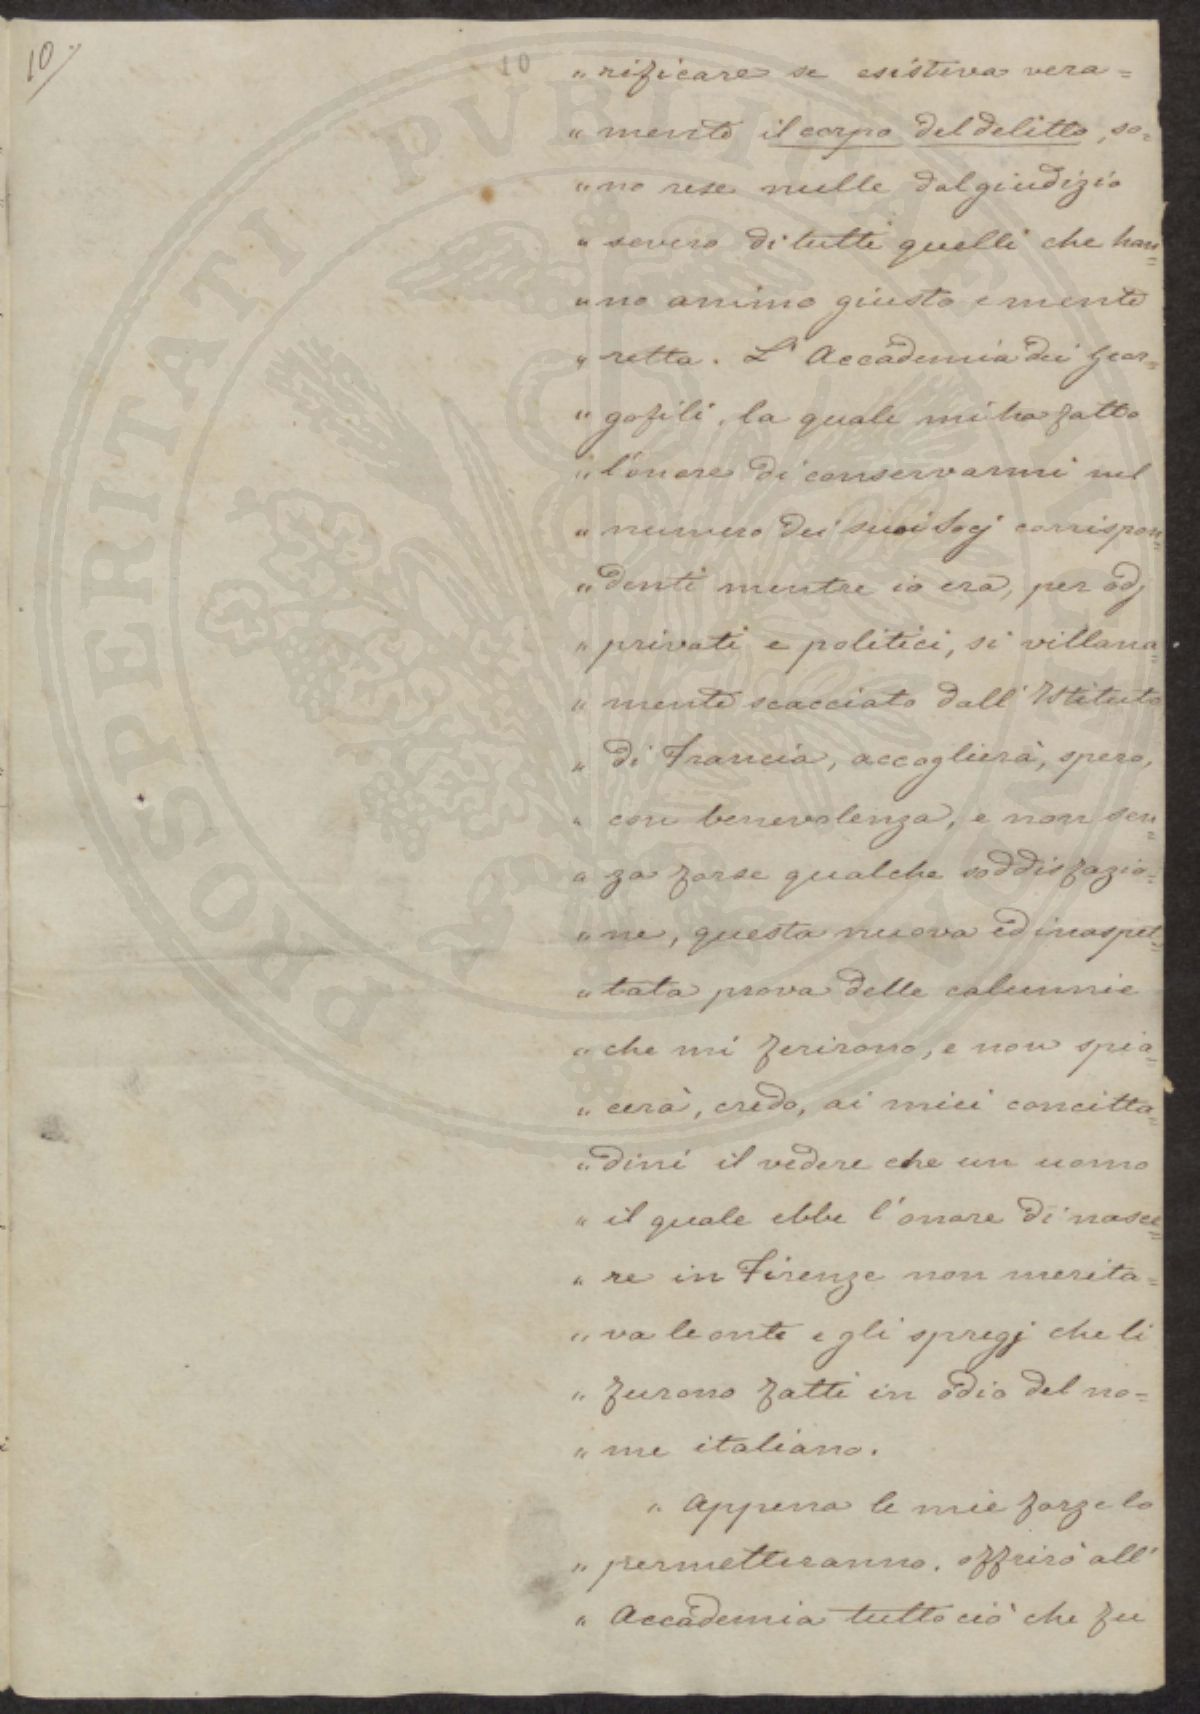 10
10
„ rificare se esisteva vera=
„ mente il corpo del delitto, so=
„ no rese nulle dal giudizio
„ severo di tutti quelli che han=
„ no animo giusto e mente
„ retta. L'Accademia dei Geor=
„ gofili, la quale mi ha fatto
„ l'onore di conservarmi nel
„ numero dei suoi Socj corrispon=
„ denti mentre io era, per odj
„ privati e politici, sì villana=
„ mente scacciato dall'Istituto
„ di Francia, accoglierà, spero,
„ con benevolenza, e non sen=
„ za forse qualche soddisfazio=
„ ne, questa nuova ed inaspet=
„ tata prova delle calunnie
„ che mi ferirono, e non spia=
„ cerà, credo, ai miei concitta=
„ dini il vedere che un uomo
„ il quale ebbe l'onore di nasce=
„ re in Firenze non merita=
„ va le onte e gli spregj che li
„ furono fatti in odio del no=
„ me italiano.
„ Appena le mie forze lo
„ permetteranno, offrirò all'
„ Accademia tutto ciò che fu
PROSPERITATI PVBLICAE AVGENDAE